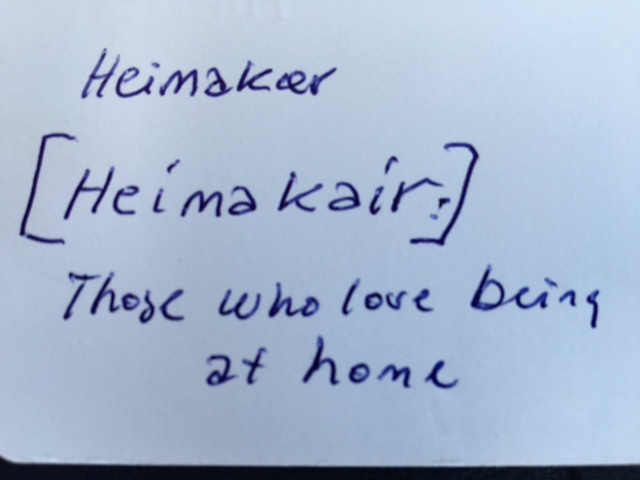 Heimakær
[Heimakair:]
Those who love being
at home